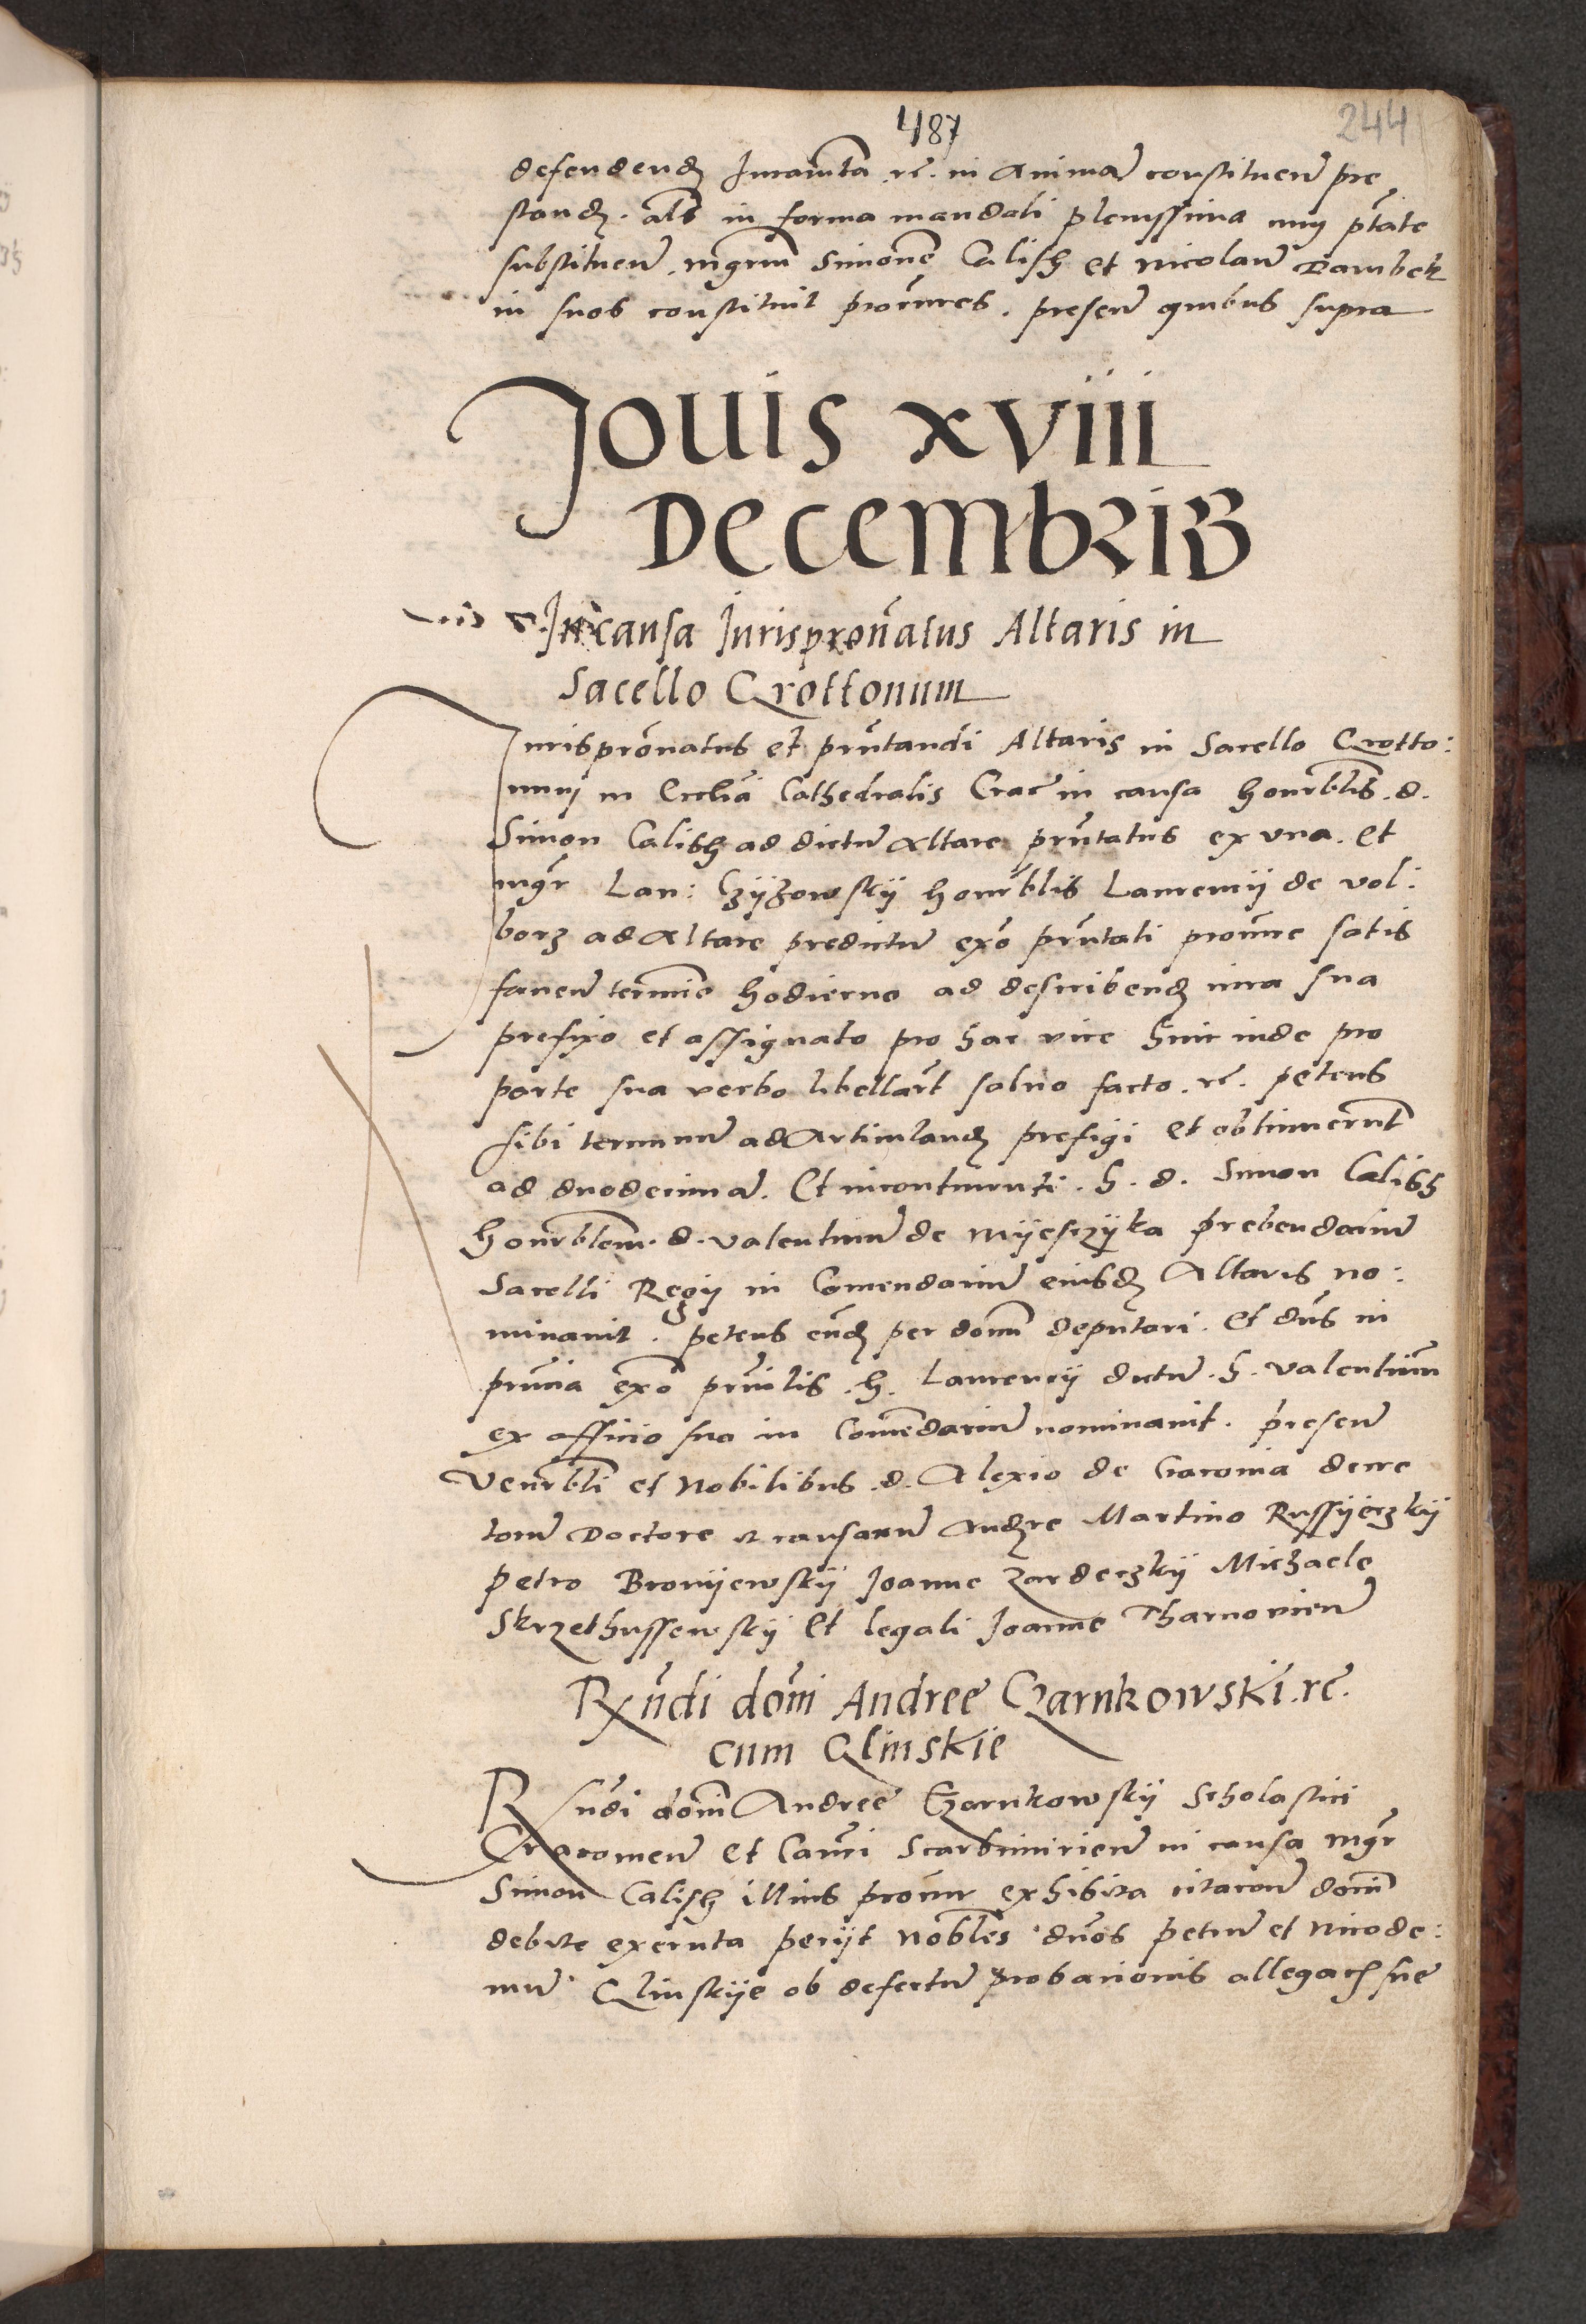 487
244
defendend Juramta rc. in Animā constituen̄ pre
stand. als in forma mandati plenissima cum ptāte
substituen̄ mgrum Simonē Calish et Nicolaū Dambek
in suos constituit procures. presen̄ quibus supra
Jouis xviii
Decembris
In causa Jurispronātus Altaris in
Sacello Grottonum
Jurisprōnatus et prntandi Altaris in Sacello Grotto:
num in Ecclīa Cathedralis Crac̄ in causa honrblis. d.
Simon Calish ad dictū Altare prntatus ex vna. Et
mgr Lau: Czyzowsky honrblis Laurencij de vol:
borz ad Altare predictū exō prntati procure satis
facien̄ termīo hodierno ad describend iura sua
prefixo et assignato pro hac vice hinc inde pro
parte sua verbo libellarūt saluo facto. rc. petens
sibi terminū ad Articuland prefigi Et obtinuerunt
ad duodecimā. Et incontinenti. h. d. Simon Calish
honrblem. d. valentinū de Myesczyka prebendariū
Sacelli Regij in Comendariū eiusd Altaris no:
minauit. petens eūd per dom̄ deputari. Et dns in
pn̄cia exō prncilis. h. Laurencij dictū. h. valentinū
ex officio suo in Comēdariū nominauit. presen̄
Venrbli et Nobilibus. d. Alexio de Cracouia decre
torū Doctore et causarū Audre Martino Russyeczky
petro Bronyewsky Joanne Zardeczky Michaele
Skrzethussewsky Et legali Joanne Tharnouien̄
Rxn̄di dom̄i Andree Czarnkowski. rc.
cum Glinskie
Rxn̄di dom̄i Andree Czarnkowsky Scholastici
Cracouien̄ Et Canci Scarbimirien̄ in causa mgr
Simon Calish illius procur exhibita citacōe dom̄
debite executa petijt Nobles dnos petrū et Nicode:
mū Glinskye ob defectū probacionis allegac sue